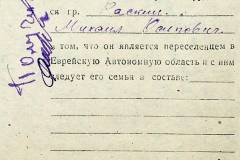 ся гр. Раскин
Михаил
в том, что он является переселенцем в
Еврейскую Автономную область и с ним
следует его семья в составе: